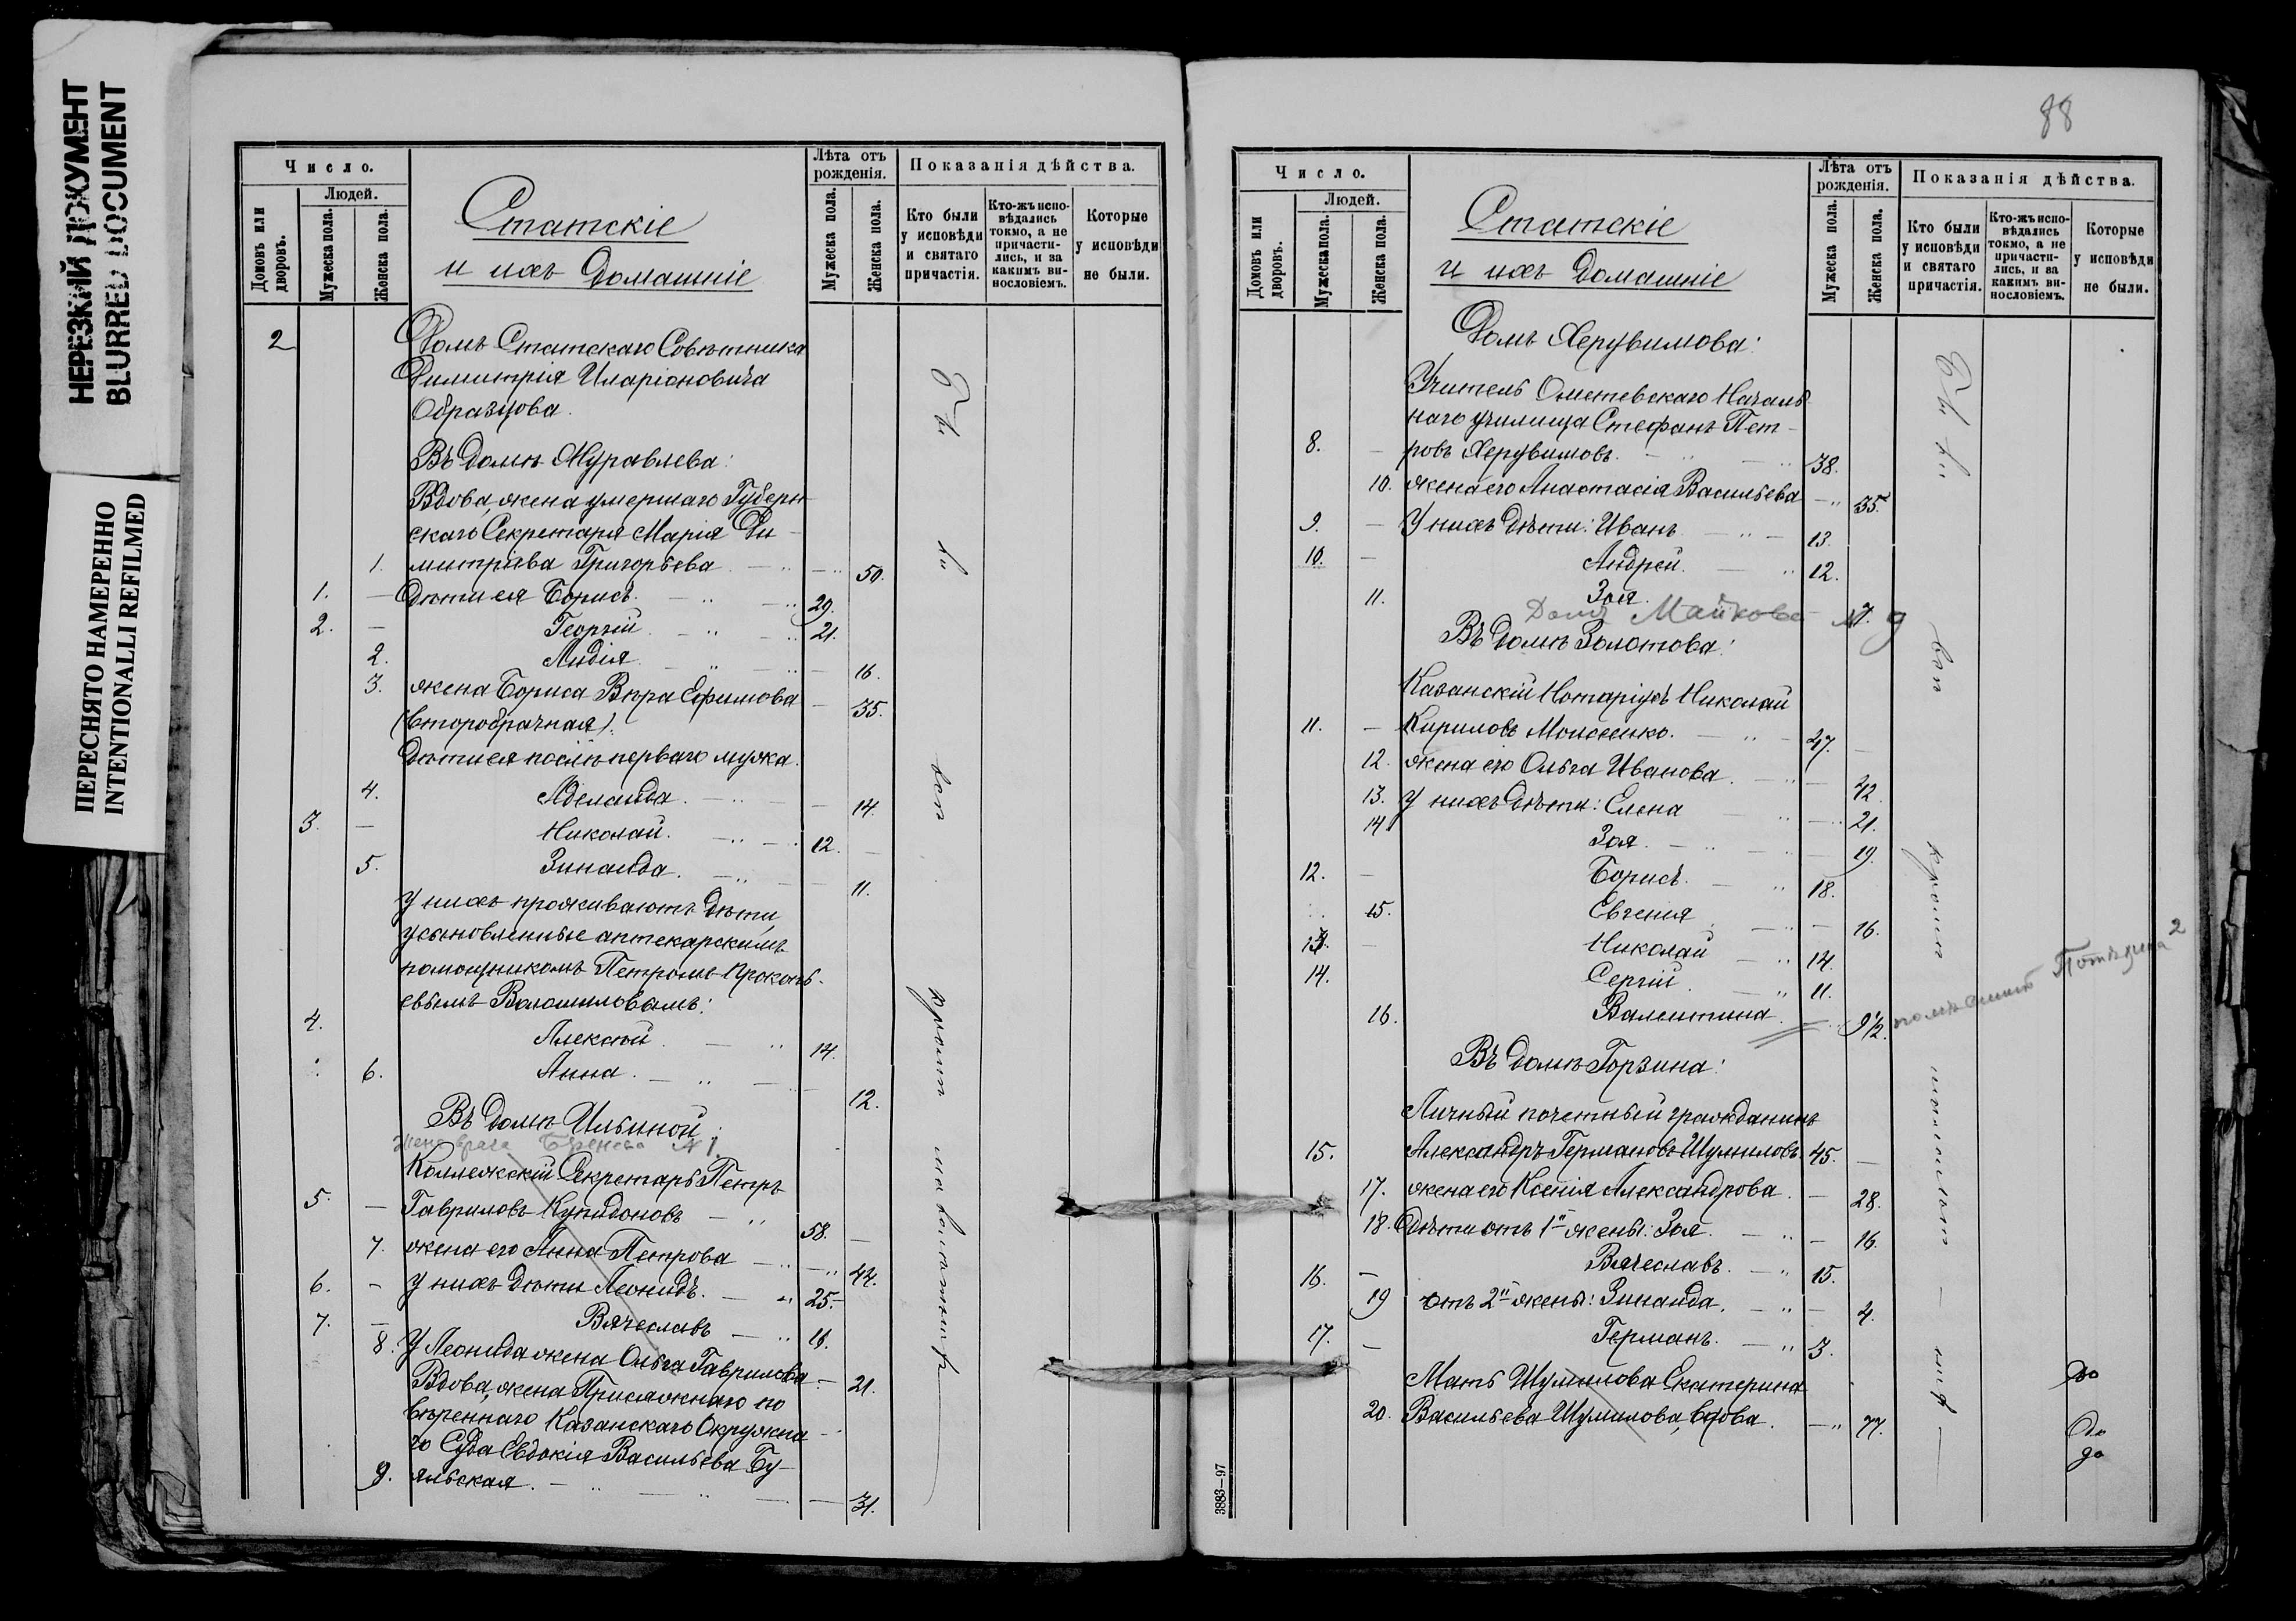 НЕРЕЗКИЙ ДОКУМЕНТ
BLURRED DOCUMENT
ПЕРЕСНЯТО НАМЕРЕННО
INTENTIONALLI REFILMED
Число.
Людей.
Домовъ или дворовъ.
Мужеска пола.
Женска пола.
Статскіе
и ихъ домашніе
Лѣта отъ рожденія.
Мужеска пола.
Женска пола.
Показанія дѣйства.
Кто были у исповѣди и святаго причастія.
Кто-жъ испо-вѣдались токмо, а не причасти-лись, и за какимъ ви-нословіемъ.
Которые у исповѣди не были.
2 Домъ Статскаго Совѣтника
Димитрія Иларіоновича
Образцова.
Въ домѣ Муравлева:
Вдова, жена умершаго Губерн
скаго Секретаря Марія Ди-
1. митріева Григорьева 50.
1. — Дѣти ея Борисъ 29.
2. — Георгій 21.
2. Лидія 16.
3. жена Бориса Вѣра Ефимова 35.
(второбрачная).
Дѣти ея послѣ перваго мужа.
4. Аделаида 14.
3. — Николай 12.
5. Зинаида 11.
У нихъ проживаютъ дѣти,
усыновленные аптекарскимъ
помощникомъ Петромъ Прокопь-
евымъ
4. Алексѣй 14.
6. Анна 12.
Въ домѣ Ильиной:
Жена врача № 1.
Коллежскій Секретарь Петръ
5. — Гавриловъ Купидоновъ 58. —
7. жена его Анна Петрова 44.
6. - У нихъ дѣти Леонидъ 25.
7. — Вячеславъ 16.
8. У Леонида жена Ольга Гаврилова 21.
Вдова, жена Присяжнаго по
вѣреннаго Казанскаго Окружна
го Суда Евдокія Васильева Бу-
9. яльская 31.
Были
всѣ
кромѣ
88
Число.
Людей.
Домовъ или дворовъ.
Мужеска пола.
Женска пола.
Статскіе
и ихъ домашніе
Лѣта отъ рожденія.
Мужеска пола.
Женска пола.
Показанія дѣйства.
Кто были у исповѣди и святаго причастія.
Кто-жъ испо-вѣдались токмо, а не причасти-лись, и за какимъ ви-нословіемъ.
Которые у исповѣди не были.
Домъ Херувимова:
Учитель Ометевскаго Началь
наго училища Стефанъ Пет-
8. — ровъ Херувимовъ 38.
10. жена его Анастасія Васильева 35.
9. — У нихъ дѣти: Иванъ 13.
10. — Андрей 12.
11. Зоя 9
Домъ Майкова
Въ домѣ Золотова:
Казанскій Нотаріусъ Николай
11. — Кириловъ Моисеенко 47. —
12. жена его Ольга Иванова 42.
13. У нихъ дѣти: Елена 21.
14. Зоя 19.
12. — Борисъ 18.
15. Евгенія 16.
13. — Николай 14.
14. Сергій 11.
16. Валентина 9½.
Въ домѣ Горзина:
Личный почетный гражданинъ
15. Александръ Германовъ Шумиловъ 45. —
17. жена его Ксенія Александрова 28.
18. Дѣти отъ 1й жены: Зоя 16.
16. — Вячеславъ 15.
19 отъ 2й жены: Зинаида 4.
17. — Германъ 3.
Мать Шумилова Екатерина
20. Васильева Шумилова, вдова 77.
Были
всѣ
кромѣ
до
до
до
3883—97